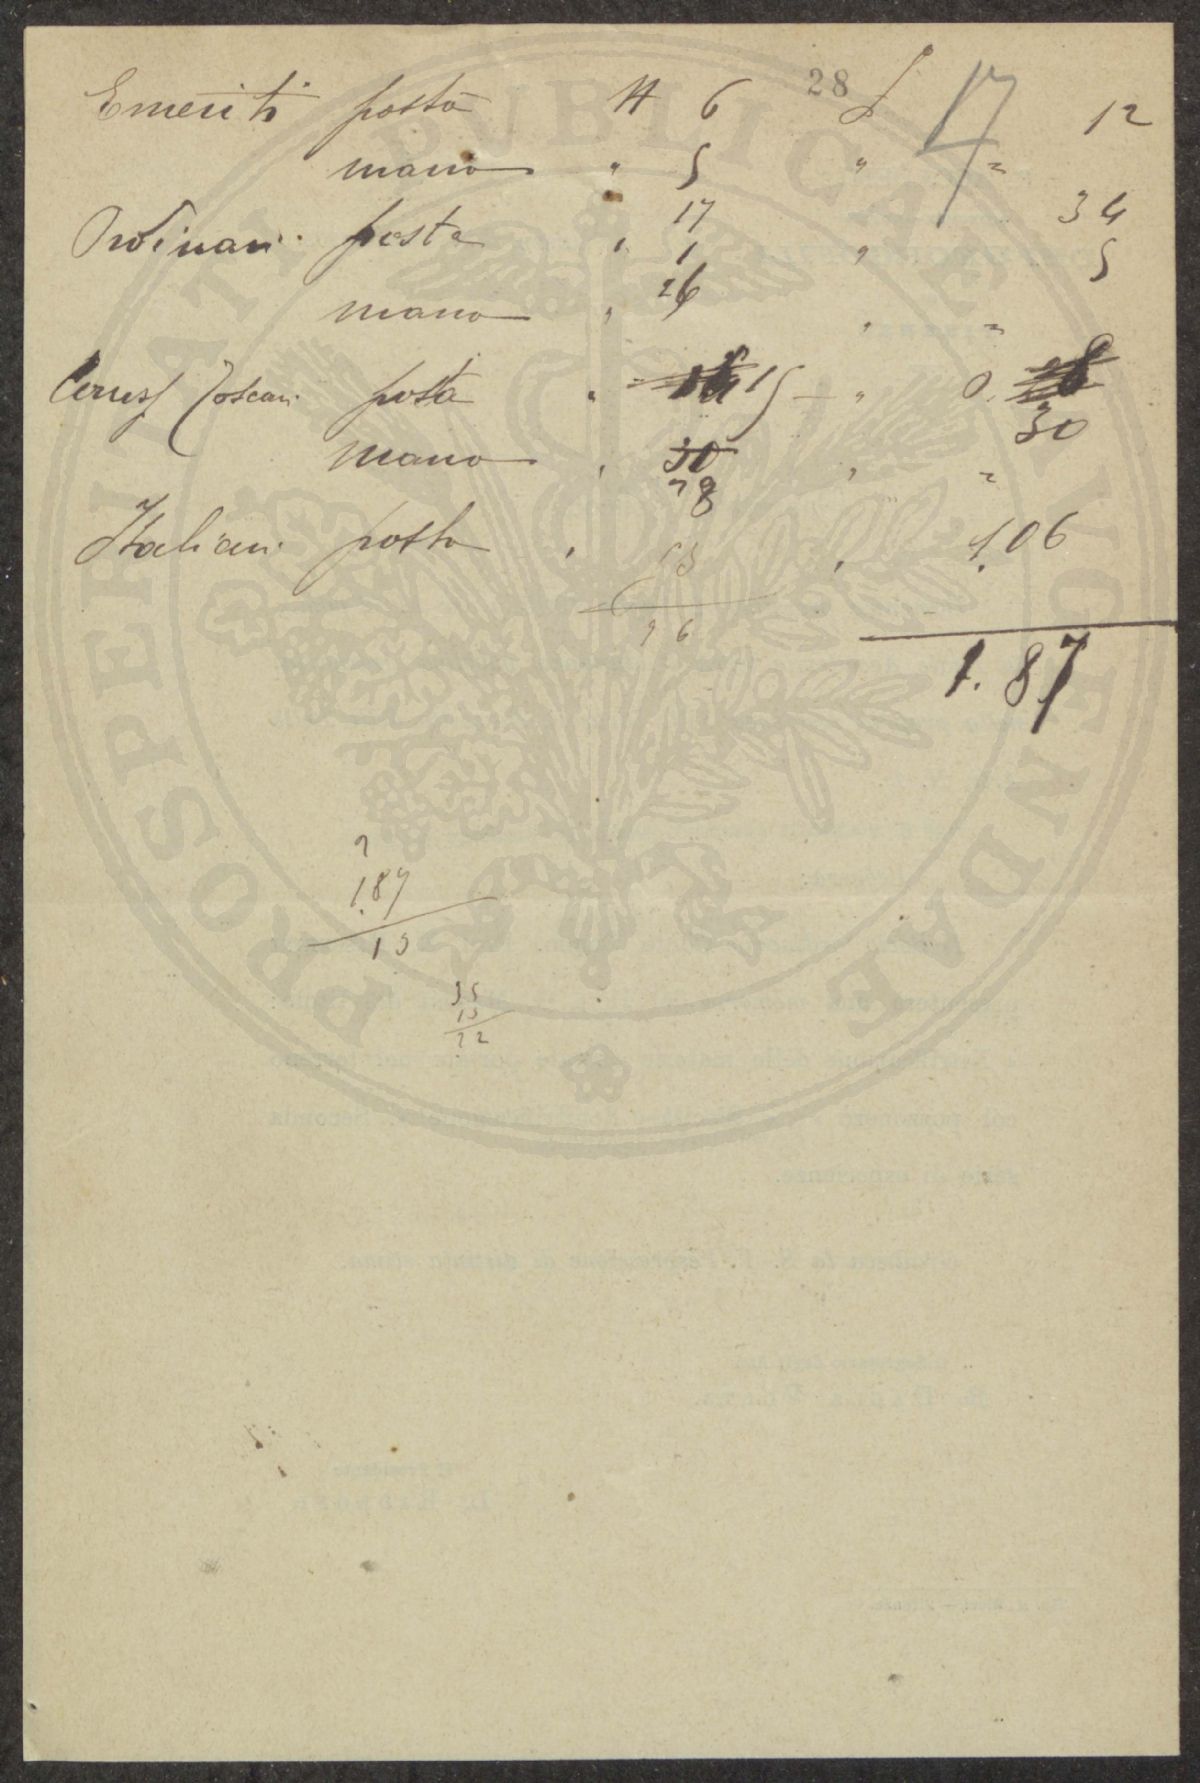 28
17
Emeriti posta N 6 £ 12
mano " 5 " "
Ordinari posta " 17 34
1 " 5
26
mano " " "
posta " 15 — " 0. 30
mano " 30 " "
28
Italiani posta " 53 " 1.06
96
1.87
2
1.87
13
35
13
22
PROSPERITATI PUBLICAE AUGENDAE